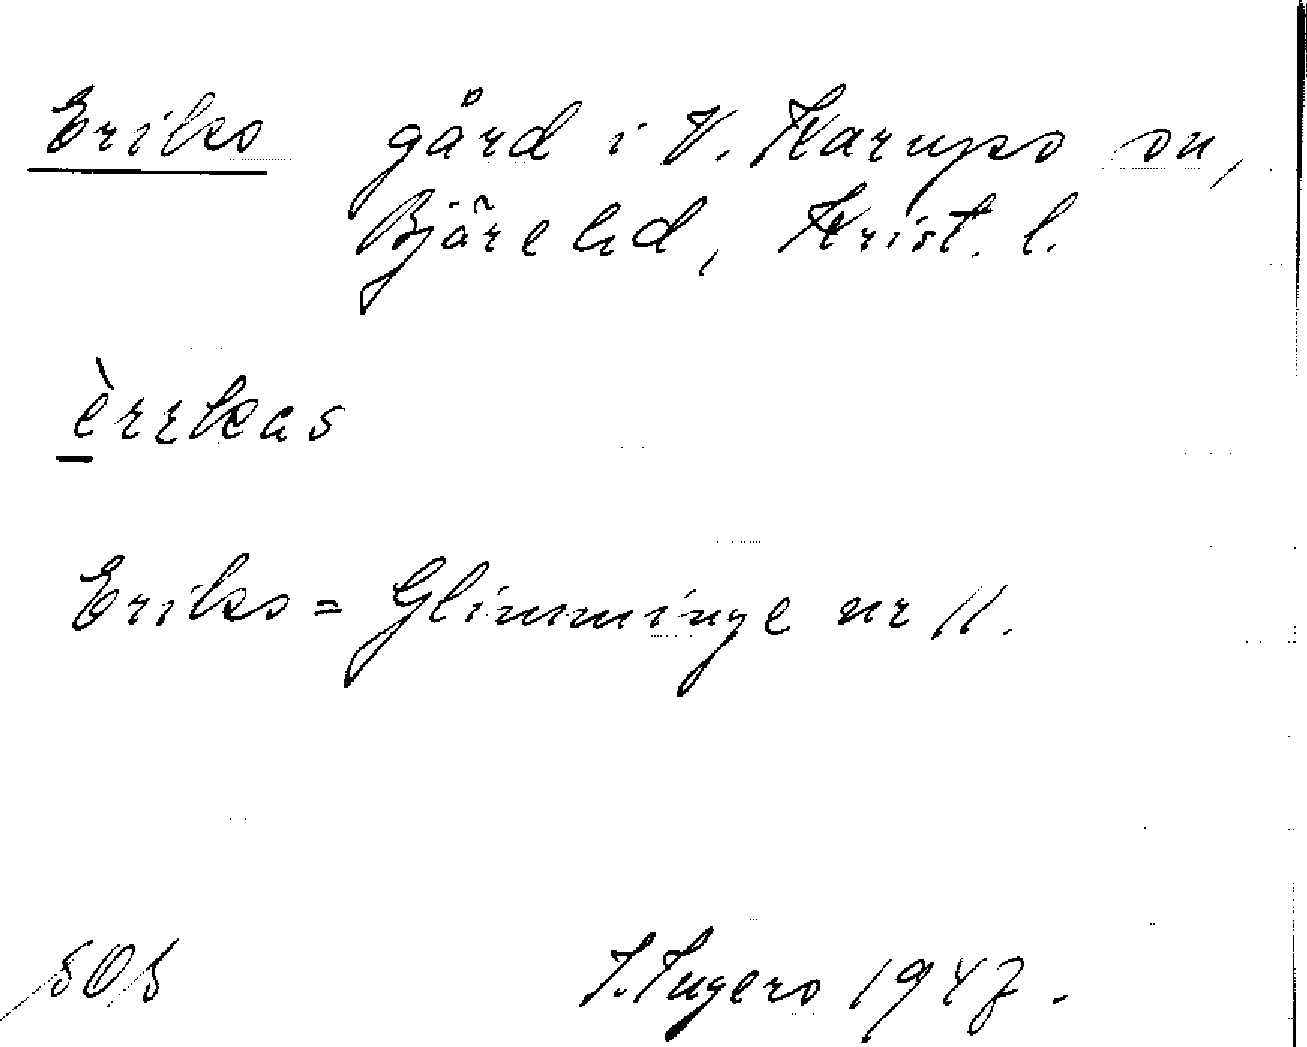 Eriks gård i V. Karups sn,
Bjäre hd, Krist. l.
èrrkas
Eriks = Glimminge nr 11.
1947.